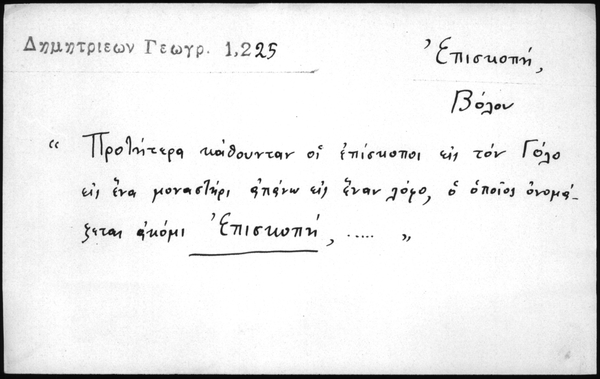 Δημητριεων Γεωγρ. 1,225
Ἐπισκοπή,
Βόλου
“ Προτήτερα κάθουνταν οἱ ἐπίσκοποι εἰς τὸν Γόλο
εἰς ἕνα μοναστήρι ἀπάνω εἰς ἕναν λόφο, ὁ ὁποῖος ὀνομά-
ζεται ἀκόμι Ἐπισκοπή, ..... „